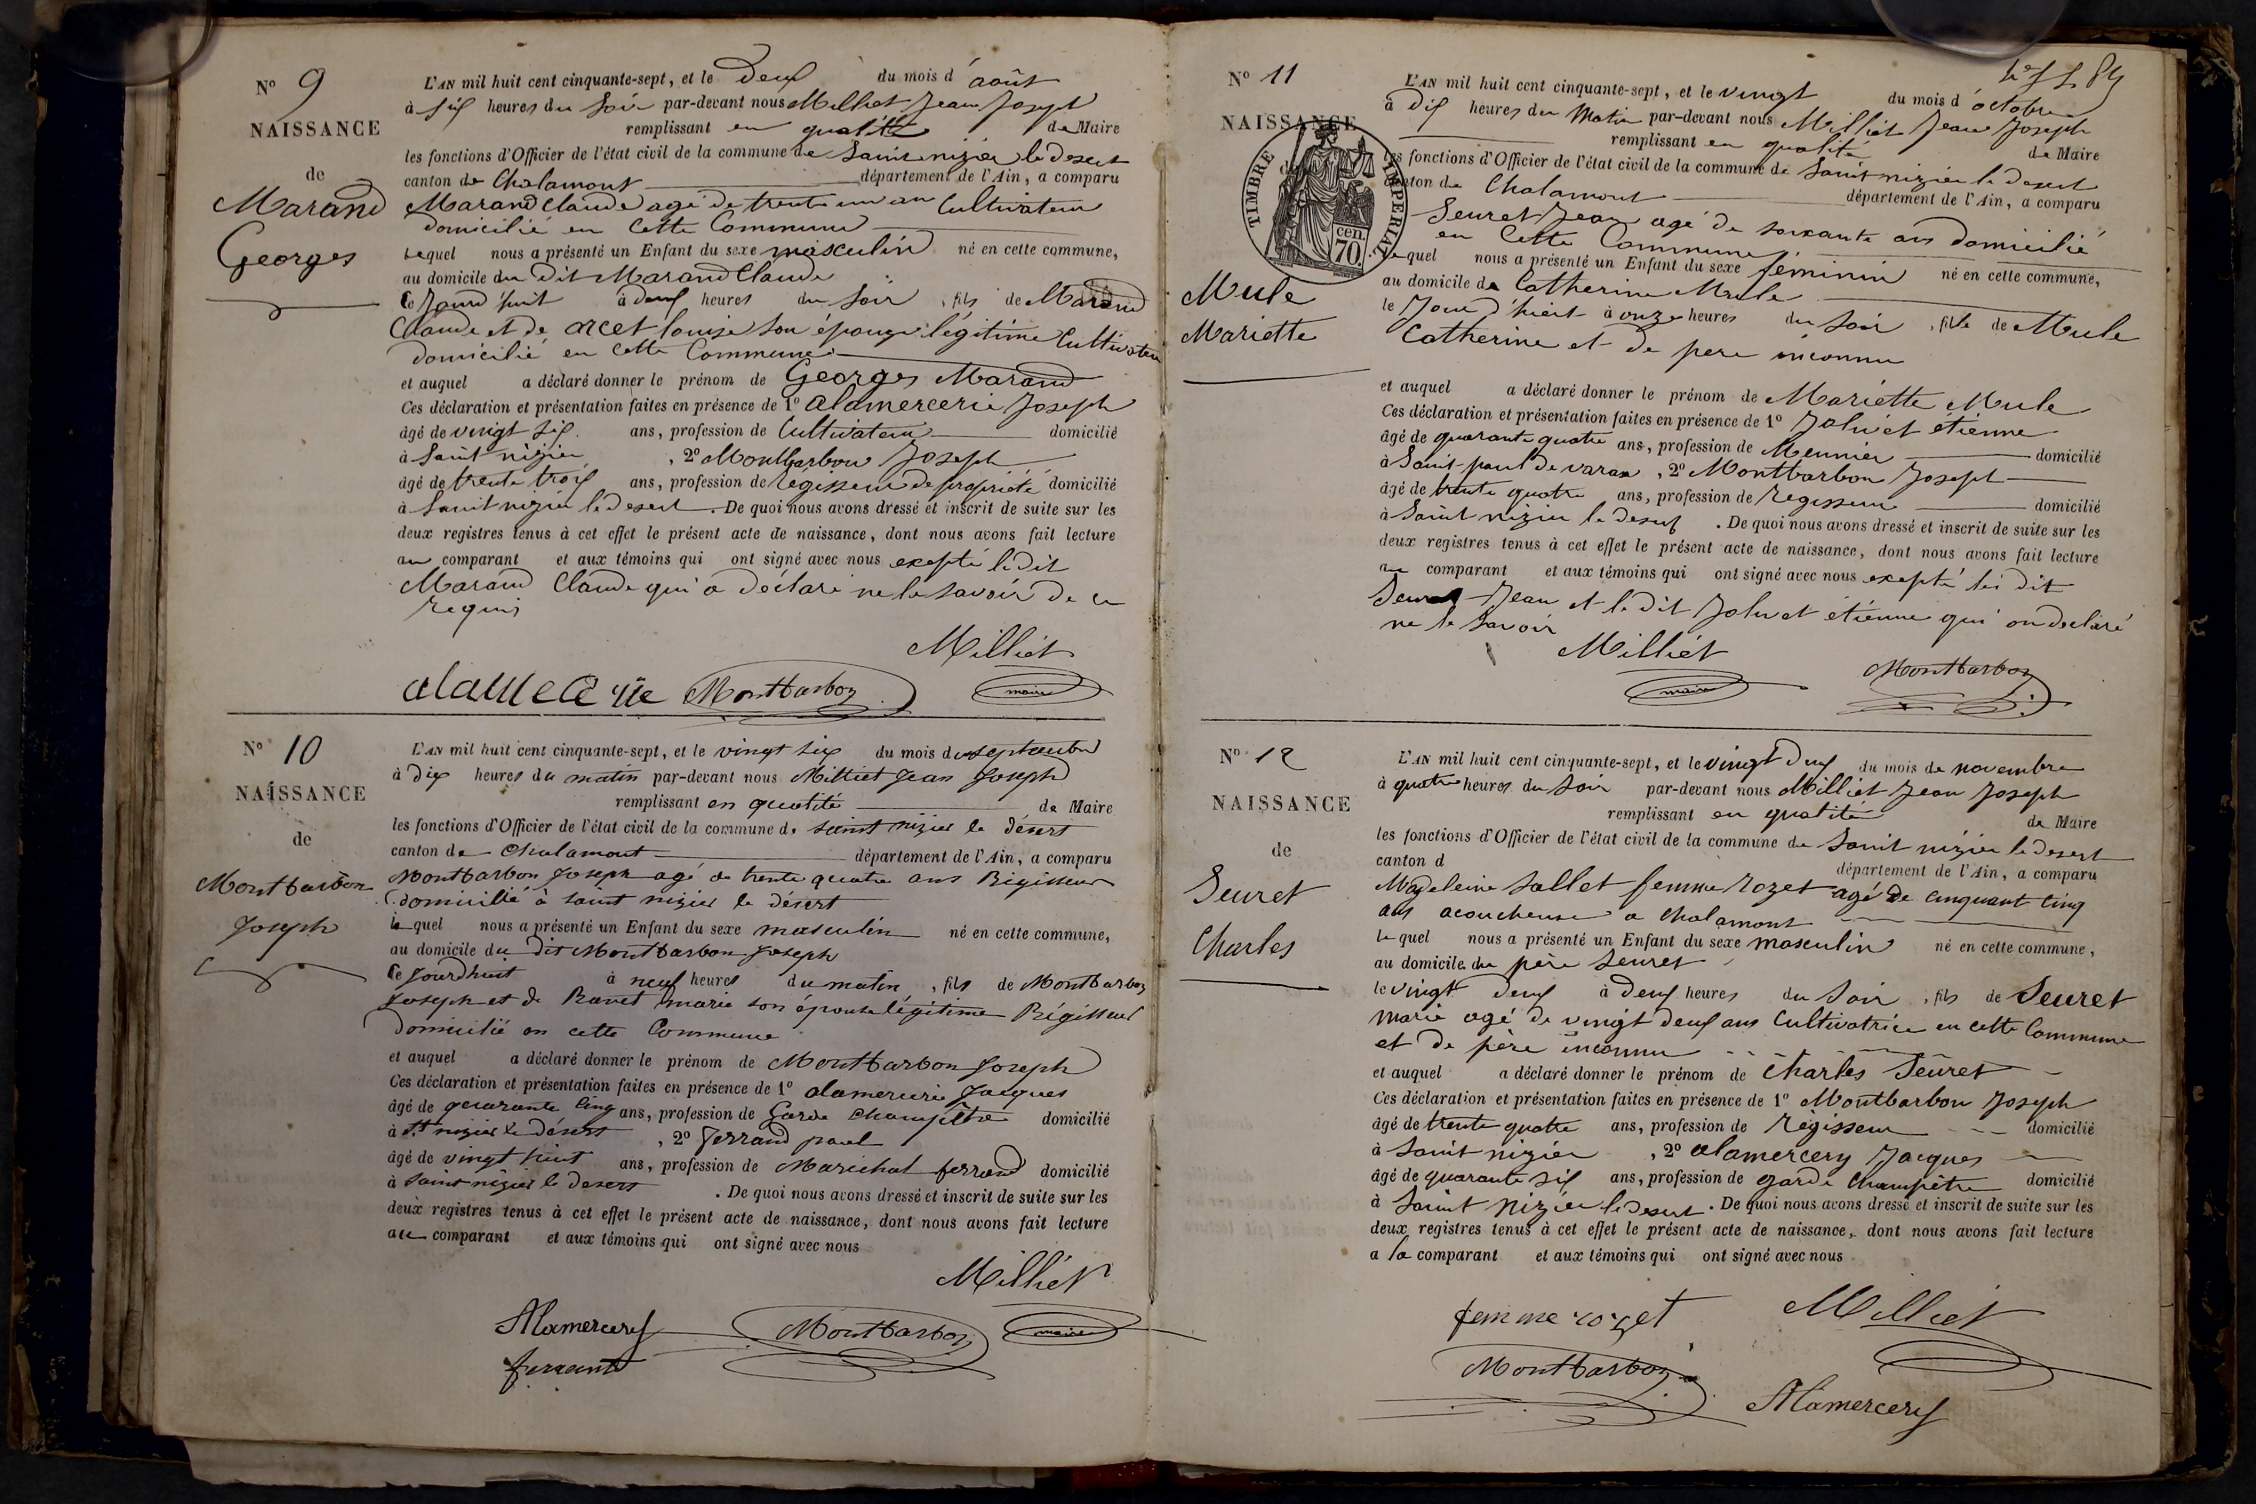 N° 9
NAISSANCE
de
Marand
Georges
L'AN mil huit cent cinquante-sept, et le deux du mois d'août
à six heures du Soir par-devant nous Milliet Jean Joseph
remplissant en qualité de Maire
les fonctions d'Officier de l'état civil de la commune de Saint nizier le desert
canton de Chalamont département de l'Ain, a comparu
Marand Claude agé de trente un an Cultivateur
domicilié en Cette Commune
Lequel nous a présenté un Enfant du sexe masculin né en cette commune,
au domicile du dit Marand Claude
le Jourd'huit à deux heures du Soir, fils de Marand
Claude et de arcet louise son épouze légitime Cultivateur
domicilié en Cette Commune
et auquel a déclaré donner le prénom de Georges Marand
Ces déclaration et présentation faites en présence de 1° alamercerie Joseph
âgé de vingt six ans, profession de Cultivateur domicilié
à Saint nizier, 2° Montbarbon Joseph
âgé de trente trois ans, profession de régisseur de propriété domicilié
à Saint nizier le desert. De quoi nous avons dressé et inscrit de suite sur les
deux registres tenus à cet effet le présent acte de naissance, dont nous avons fait lecture
au comparant et aux témoins qui ont signé avec nous excepté le dit
Marand Claude qui a déclaré ne le savoir de ce
requis
Milliet
alamecerie Montbarbon maire
N° 10
NAISSANCE
de
Montbarbon
Joseph
L'AN mil huit cent cinquante-sept, et le vingt six du mois de septembre
à dix heures du matin par-devant nous Milliet Jean Joseph
remplissant en qualité de Maire
les fonctions d'Officier de l'état civil de la commune de saint nizier le désert
canton de Chalamont département de l'Ain, a comparu
Montbarbon Joseph agé de trente quatre ans Régisseur
domicilié à saint nizier le désert
lequel nous a présenté un Enfant du sexe masculin né en cette commune,
au domicile du dit Montbarbon Joseph
le Jourdhuit à neuf heures du matin, fils de Montbarbon
Joseph et de Ravet marie son épouse légitime Régisseur
Domicilié en cette Commune
et auquel a déclaré donner le prénom de Montbarbon Joseph
Ces déclaration et présentation faites en présence de 1° alamercerie Jacques
âgé de quarante Cinq ans, profession de Garde Champêtre domicilié
à St nizier le Désert, 2° Ferrand paul
âgé de vingt huit ans, profession de Maréchal ferrand domicilié
à Saint nizier le Desert. De quoi nous avons dressé et inscrit de suite sur les
deux registres tenus à cet effet le présent acte de naissance, dont nous avons fait lecture
au comparant et aux témoins qui ont signé avec nous
Milliet
Alamercery Montbarbon maire
ferrand
N° 11
NAISSANCE
TIMBRE IMPERIAL
70 cen.
Mule
Mariette
L'AN mil huit cent cinquante-sept, et le vingt du mois d'octobre
à Dix heures du Matin par-devant nous Milliet Jean Joseph
remplissant en qualité de Maire
les fonctions d'Officier de l'état civil de la commune de Saint nizier le desert
canton de Chalamont département de l'Ain, a comparu
Seuret Jean agé de soixante ans domicilié
en Cette Commune
Lequel nous a présenté un Enfant du sexe féminin né en cette commune,
au domicile de Catherine Mule
le Jour d'hiert à onze heures du Soir, fille de Mule
Catherine et de pere inconnu
et auquel a déclaré donner le prénom de Mariette Mule
Ces déclaration et présentation faites en présence de 1° Jolivet étienne
âgé de quarante quatre ans, profession de Meunier domicilié
à Saint-paul de varax, 2° Montbarbon Joseph
âgé de trente quatre ans, profession de regisseur domicilié
à Saint nizier le desert. De quoi nous avons dressé et inscrit de suite sur les
deux registres tenus à cet effet le présent acte de naissance, dont nous avons fait lecture
au comparant et aux témoins qui ont signé avec nous excepté lei dit
Seuret Jean et le dit Jolivet étienne qui on declaré
ne le Savoir
Milliet
maire
Montbarbon
N° 12
NAISSANCE
de
Seuret
Charles
L'AN mil huit cent cinquante-sept, et le vingt deux du mois de novembre
à quatre heures du Soir par-devant nous Milliet Jean Joseph
remplissant en qualité de Maire
les fonctions d'Officier de l'état civil de la commune de Saint nizier le desert
canton d département de l'Ain, a comparu
Magdeleine Sallet femme rozet agé de cinquant cinq
ans acoucheuse a chalamont
lequel nous a présenté un Enfant du sexe masculin né en cette commune,
au domicile du père Seuret
le vingt deux à deux heures du Soir, fils de Seuret
marie agé de vingt deux ans Cultivatrice en cette Commune
et de père inconnu
et auquel a déclaré donner le prénom de Charles Seuret
Ces déclaration et présentation faites en présence de 1° Montbarbon Joseph
âgé de trente quatre ans, profession de régisseur domicilié
à Saint nizier, 2° alamercery Jacques
âgé de quarante six ans, profession de garde Champêtre domicilié
à Saint Nizier le desert. De quoi nous avons dressé et inscrit de suite sur les
deux registres tenus à cet effet le présent acte de naissance, dont nous avons fait lecture
a la comparant et aux témoins qui ont signé avec nous
femme rozet Milliet
Montbarbon
Alamercery